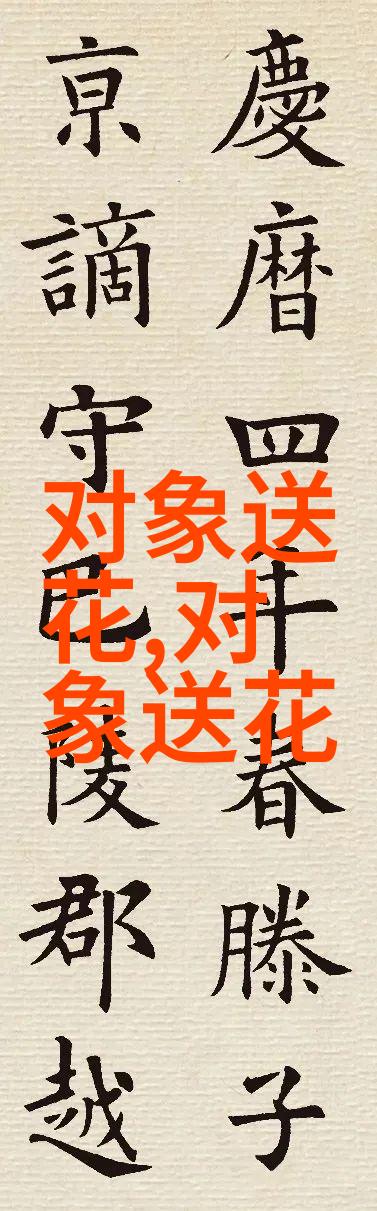 慶暦四年春滕子
亰謫守巴陵郡越
对象送
花,对
象送花